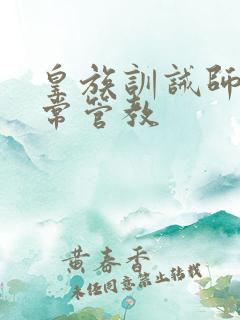 皇族訓誡師
常管教
黄春香
未经同意禁止转载